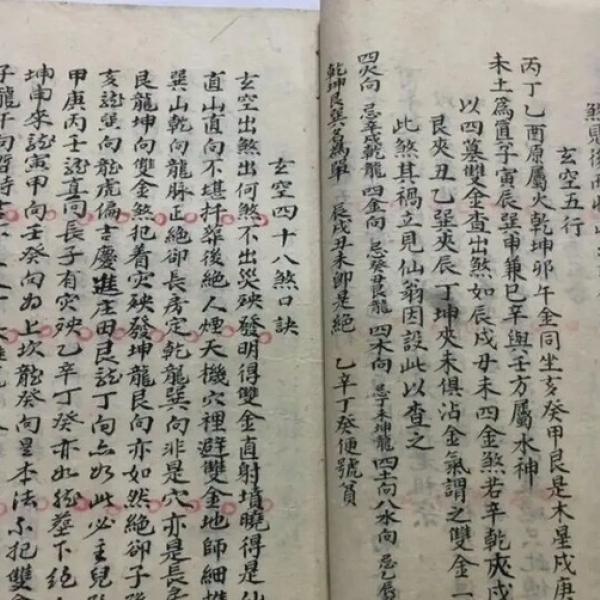 煞見後
玄空五行
丙丁乙酉原屬火乾坤卯午金同坐亥癸甲艮是木星戌庚
未土為真子寅辰巽申兼巳辛與壬方屬水神
以四墓雙金查出煞如辰戌丑未四金煞若辛乾夾戌
艮夾丑乙巽夾辰丁坤夾未俱沾金氣謂之雙金一
此煞其禍立見仙翁因設此以查之
四火向 忌辛戌乾龍 四金向 忌癸丑艮龍 四木向 忌丁未坤龍 四土向八水向 忌乙辰
乾坤艮巽名為單 辰戌丑未即是絕 乙辛丁癸便號貧
玄空四十八煞口訣
玄空出煞出何煞不出災殃發明得雙金直射墳曉得是仙
直山直向不堪扦葬後絕人煙天機穴裡避雙金地師細推
巽山乾向龍脉正絕卻長房定乾龍巽向非是穴亦是長房
艮龍坤向雙金煞犯着灾殃發坤龍艮向亦如然絕卻子孫
亥龍巽向龍虎偏吉慶進庄田艮龍丁向亦如此必主兒孫
甲庚丙壬龍直向長子有灾殃乙辛丁癸亦如然葬下絕
坤申來龍寅甲向壬癸向為上坎龍癸向是本法不犯雙金
子龍午向